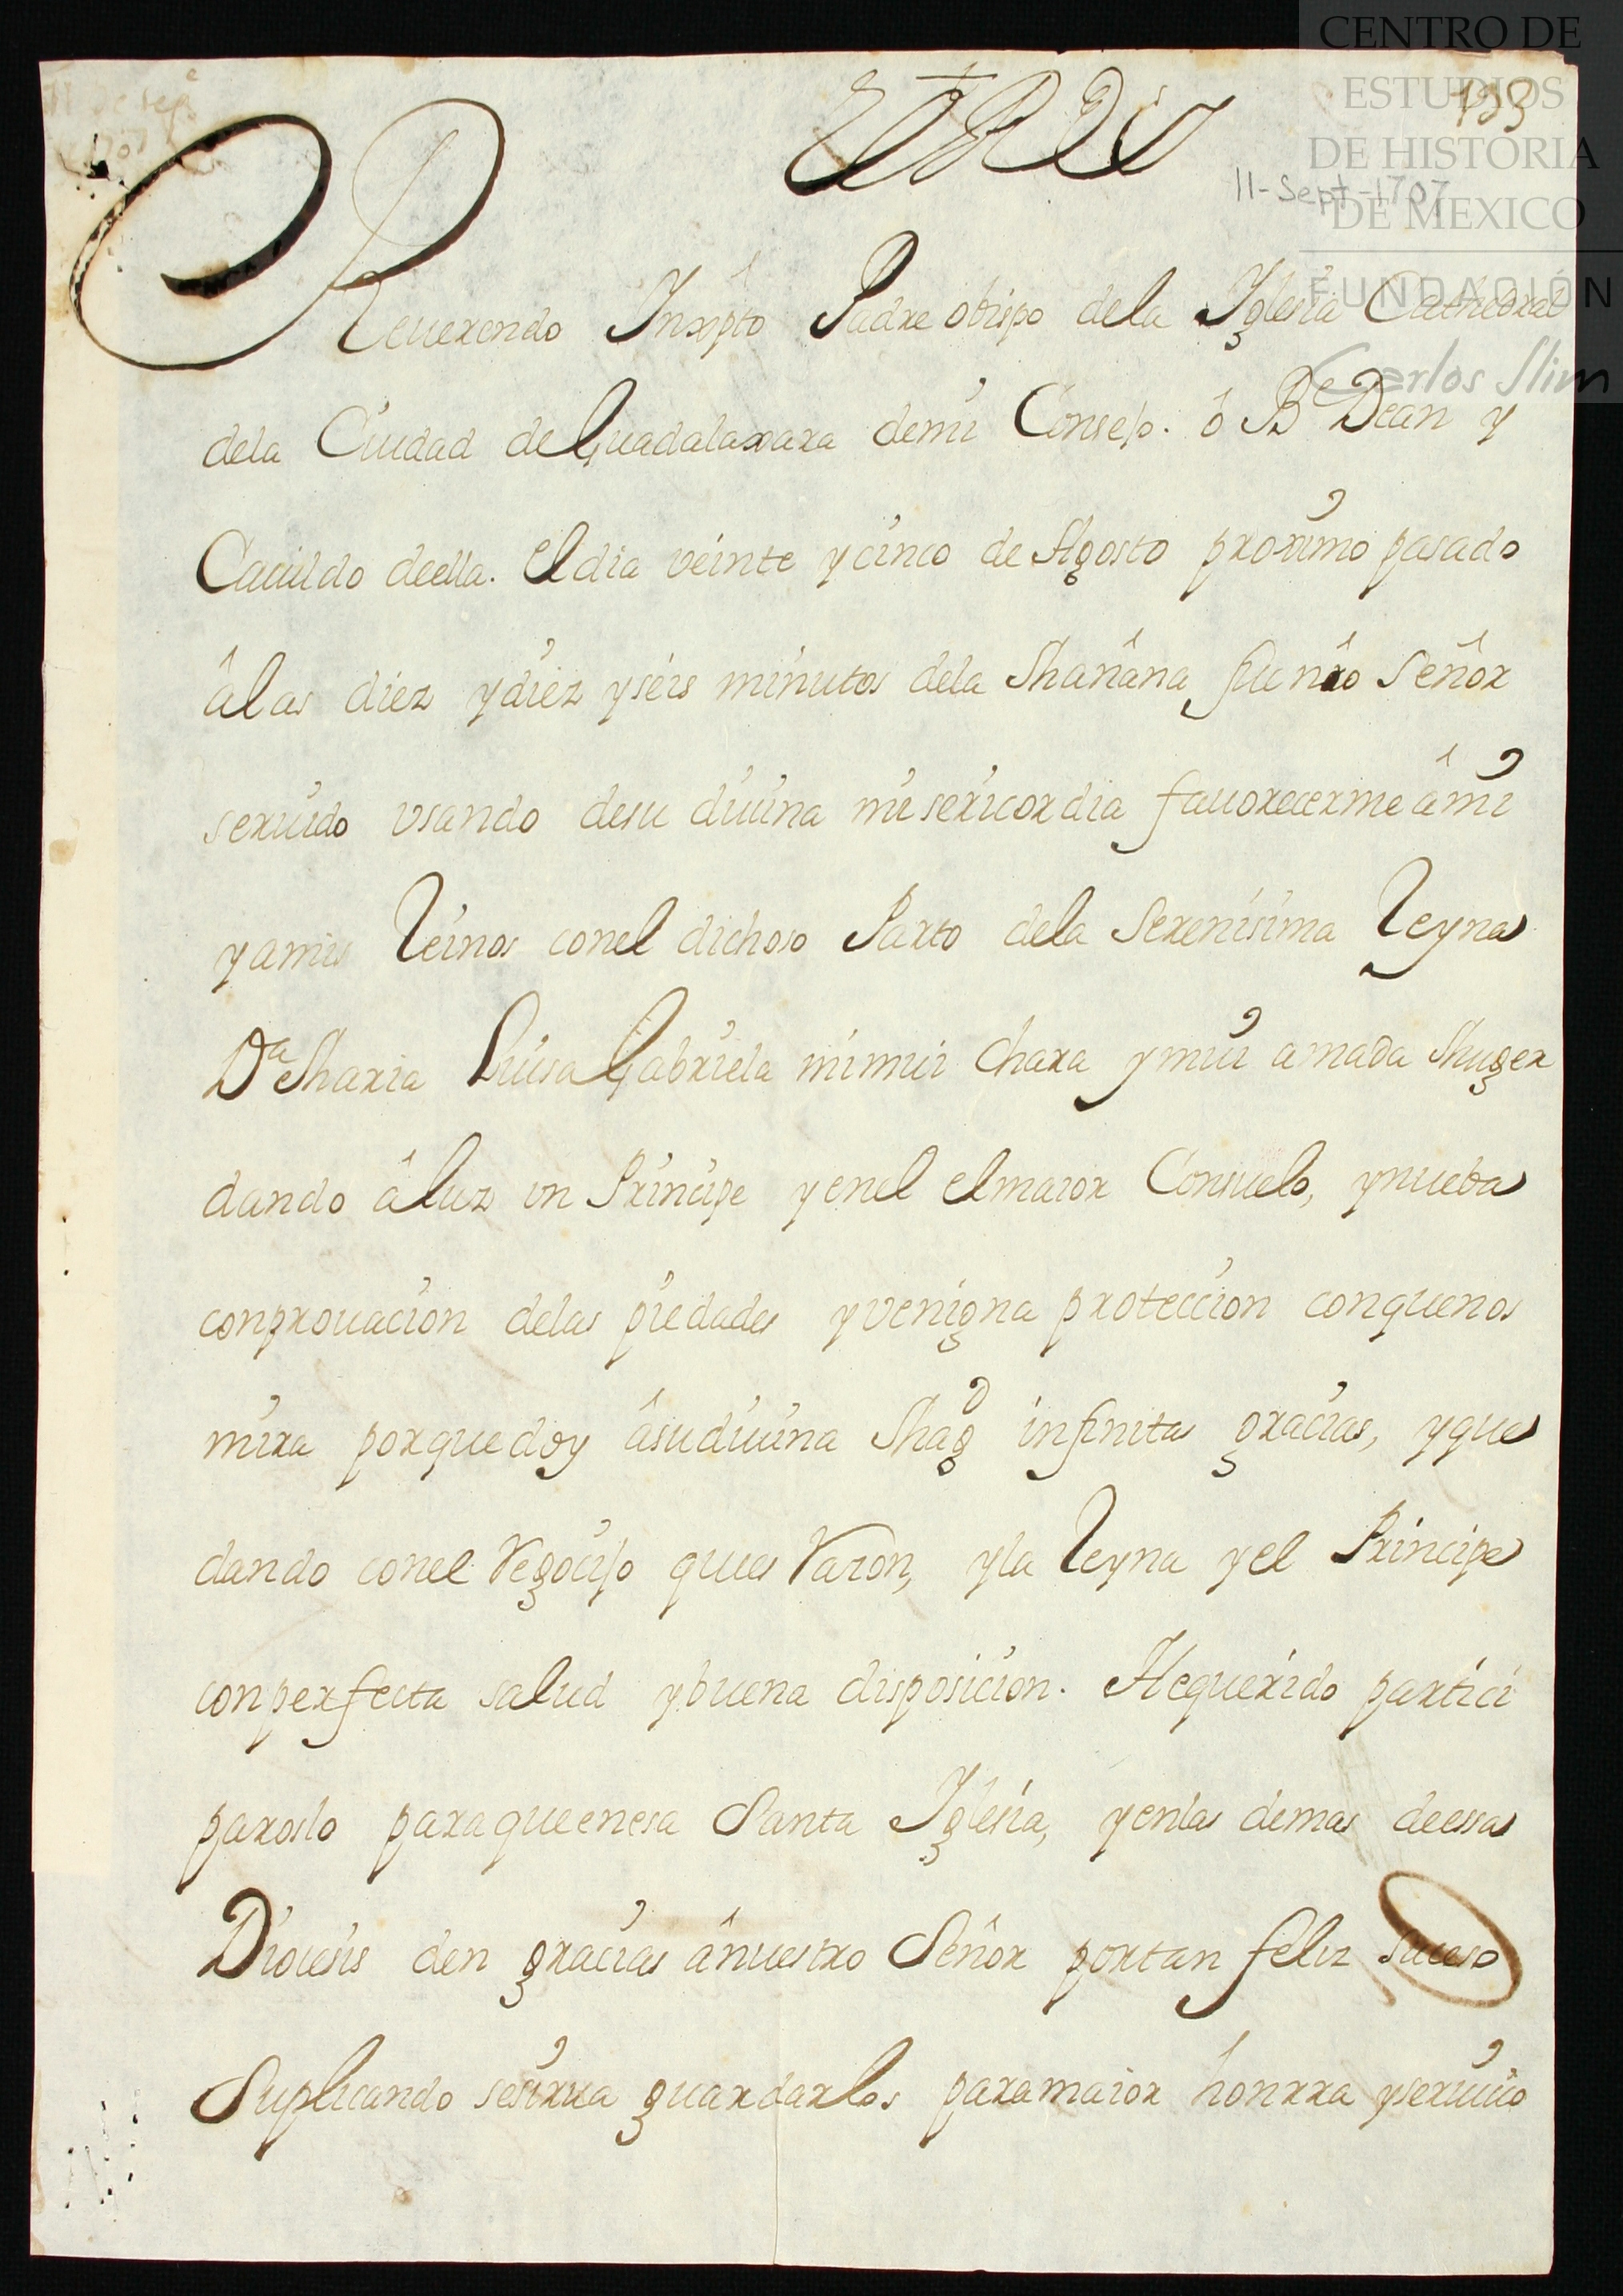 CENTRO DE
ESTUDIOS
DE HISTORIA
DE MEXICO
FUNDACIÓN
Carlos Slim
133
11-Sept-1707
El Rey
Reuerendo Inxpto Padre obispo dela Iglesia Cathedral
dela Ciudad de Guadalaxara demi Consejo. ô Be Dean y
Cauildo deella. El dia veinte ycinco de Agosto proximo pasado
âlas diez ydiez yseis minutos dela Mañana fue nro Señor
seruido vsando desu diuina misericordia fauorecerme âmi
yamis Reinos conel dichoso Parto dela Serenisima Reyna
Da Maria Luisa Gabriela mimui chara ymui amada Muger
dando âluz vn Principe yenel elmaior Consuelo, ynueba
conprouacion delas piedades yvenigna proteccion conquenos
mira porquedoy âsudiuina Magd infinitas gracias, yque
dando conel Regocijo ques Varon, yla Reyna yel Principe
conperfecta salud ybuena disposicion. Hequerido partici
paroslo paraqueenesa Santa Iglesia, yenlas demas deessa
Diocesis den gracias ânuestro Señor portan feliz suceso
Suplicando sesirua guardarlos paramaior honrra yseruicio